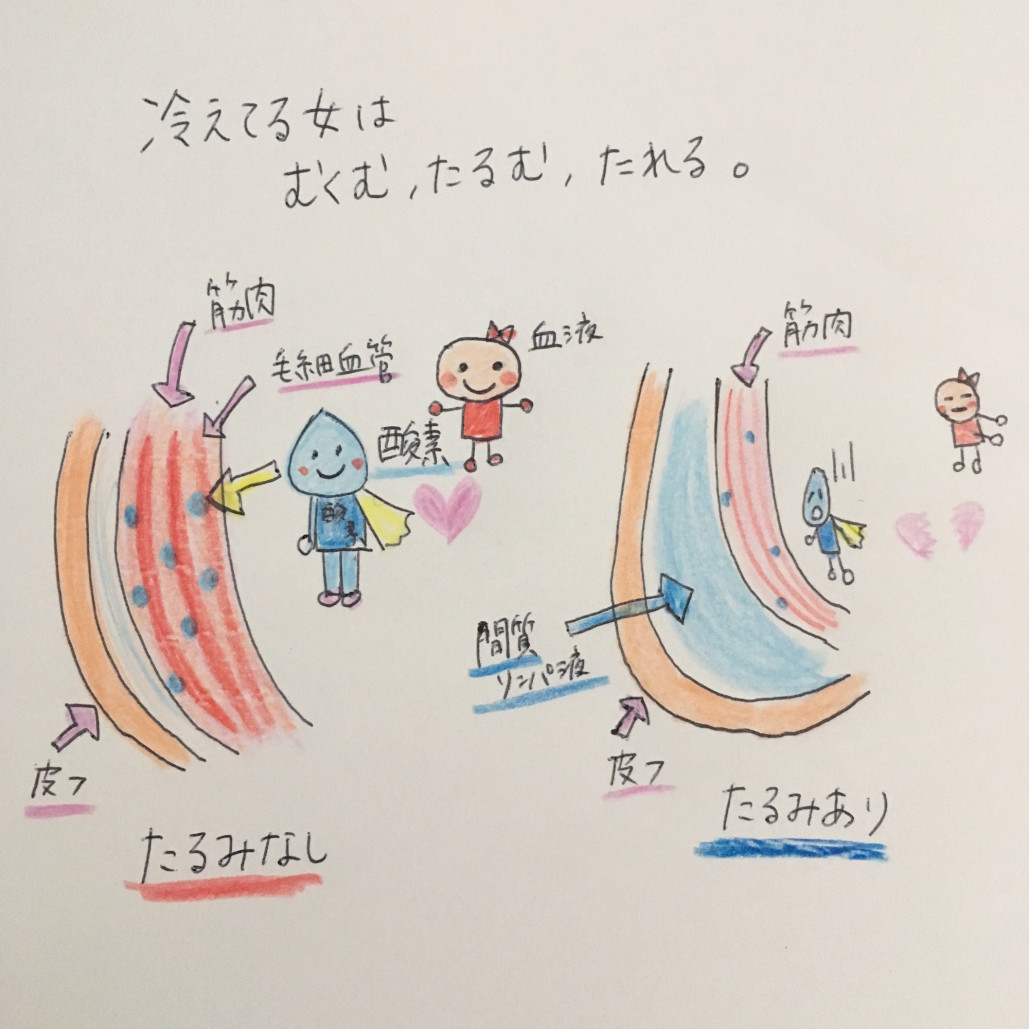 冷えてる女は
むくむ,たるむ,たれる。
筋肉
毛細血管
血液
酸素
酸素
皮フ
たるみなし
筋肉
間質
リンパ液
皮フ
たるみあり